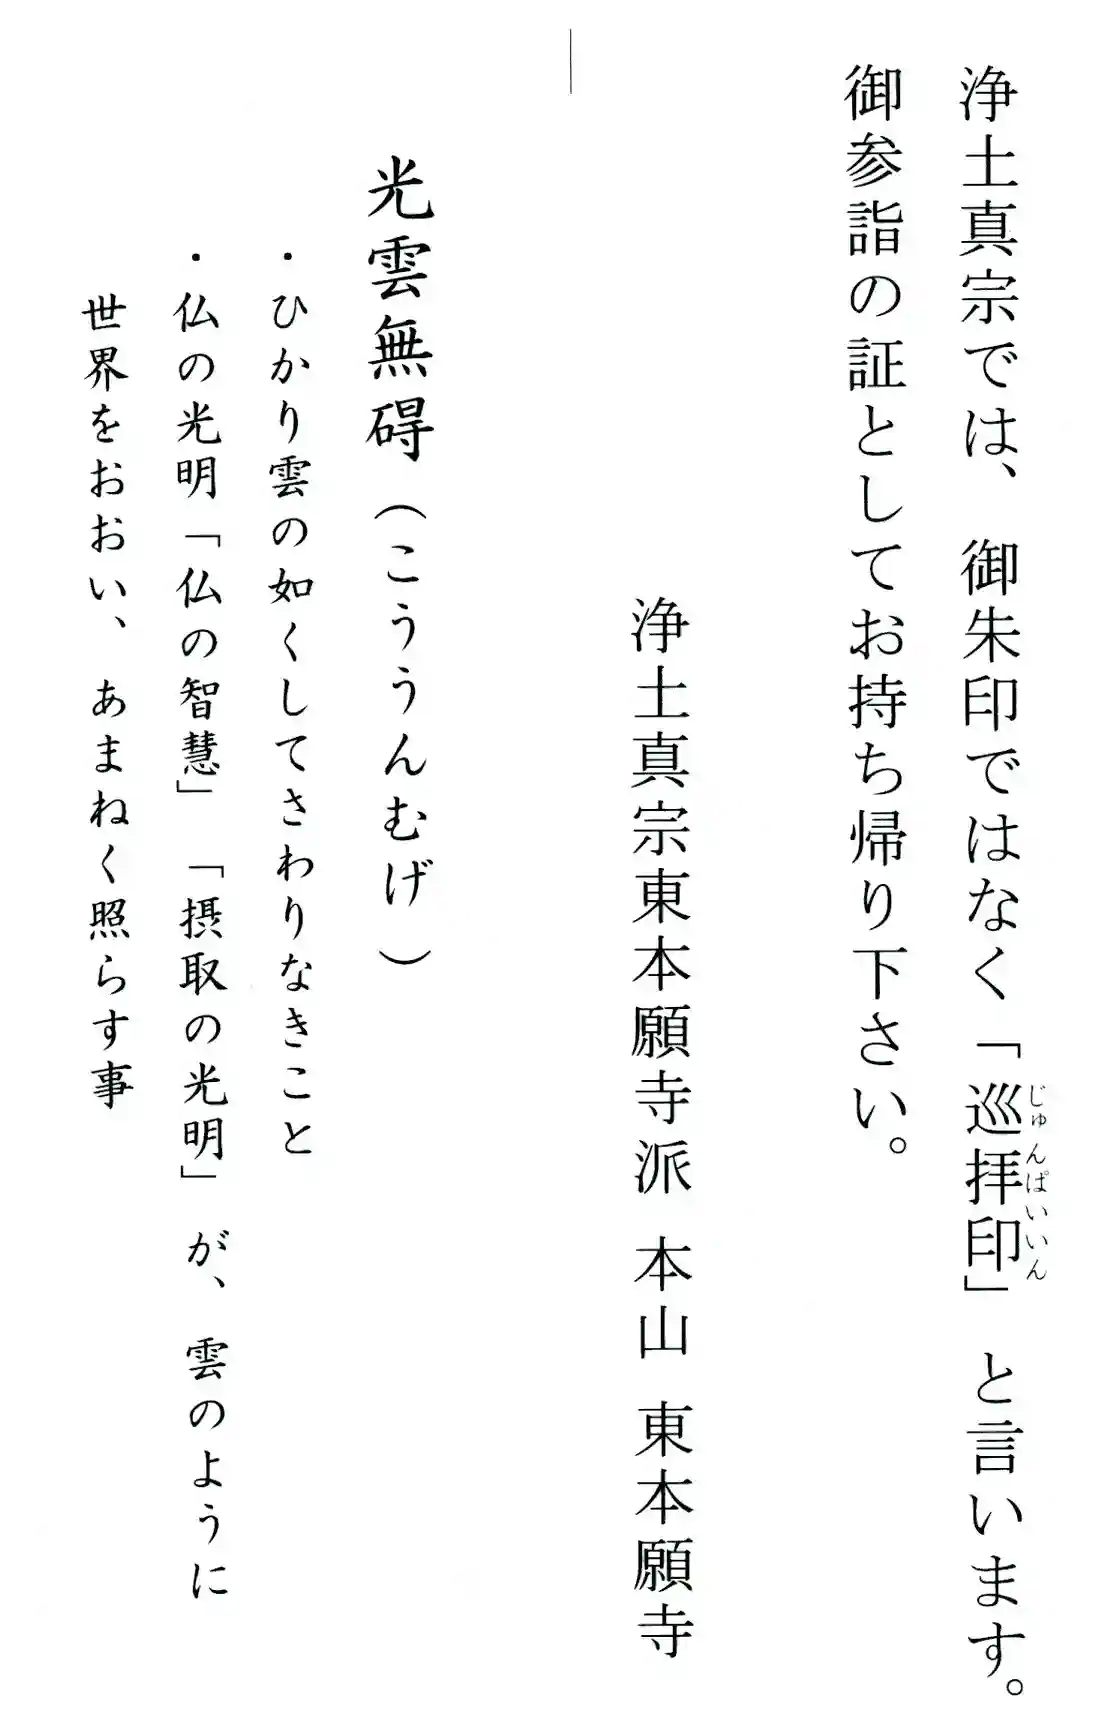 浄土真宗では、御朱印ではなく「巡拝印」と言います。
じゅんぱいいん
御参詣の証としてお持ち帰り下さい。
浄土真宗東本願寺派 本山 東本願寺
光雲無碍(こううんむげ)
・ひかり雲の如くしてさわりなきこと
・仏の光明「仏の智慧」「摂取の光明」が、雲のように
世界をおおい、あまねく照らす事